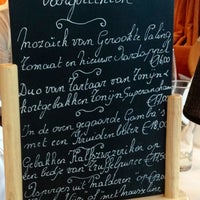 Voorgerechten
Mozaïek van Gerookte Paling
Tomaat en nieuwe Aardappel
€16,00
Duo van Tartaar van Tonijn &
kortgebakken Tonijn
In de oven gegaarde Gamba's
met een Kruidenboter €18,00
Gebakken Kalfszwezeriken op
een bedje van Truffelpuree
Asperges uit Malderen
met Mousseline